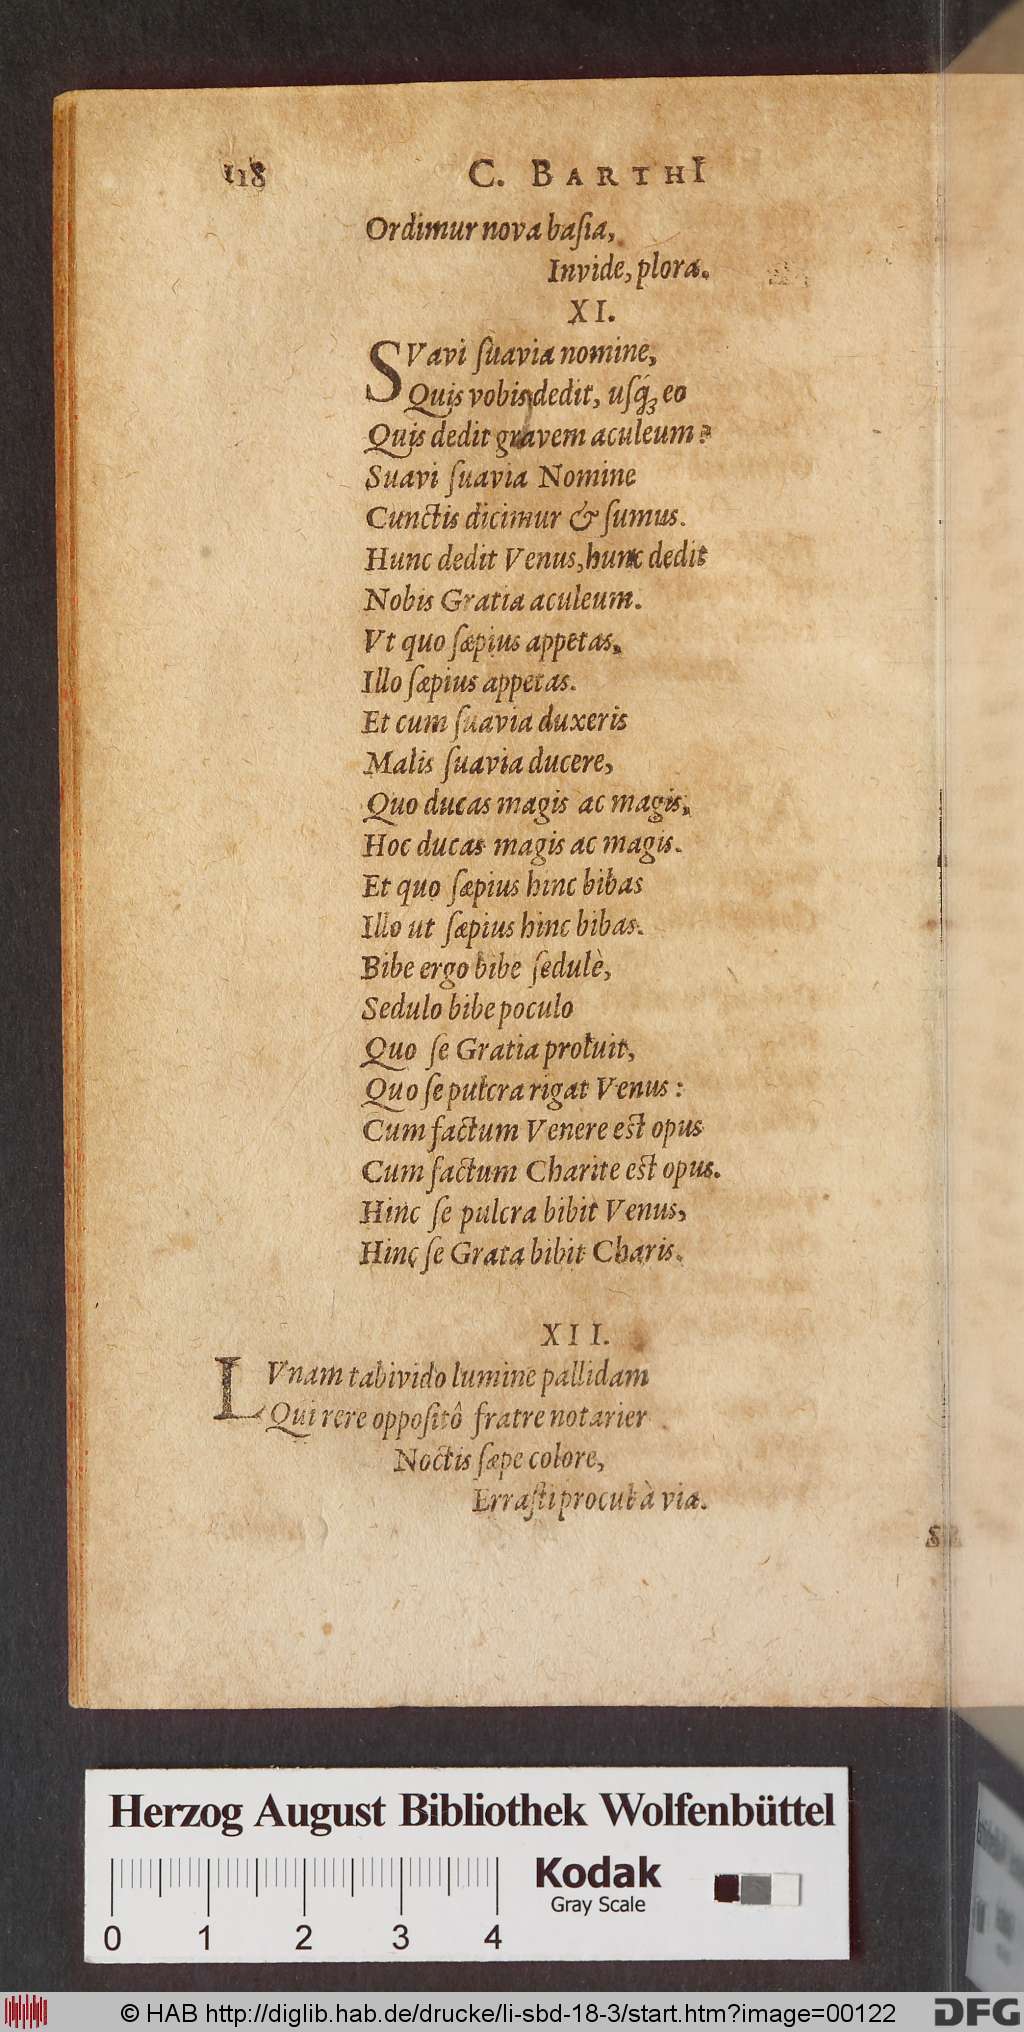 118 C. BARTHI
Ordimur nova baſia,
Invide, plora.
XI.
SVavi ſuavia nomine,
Quis vobis dedit, uſq́ꝫ eo
Quis dedit gravem aculeum?
Suavi ſuavia Nomine
Cunctis dicimur & ſumus.
Hunc dedit Venus, hunc dedit
Nobis Gratia aculeum.
Vt quo ſæpius appetas,
Illo ſæpius appetas.
Et cum ſuavia duxeris
Malis ſuavia ducere,
Quo ducas magis ac magis,
Hoc ducas magis ac magis.
Et quo ſæpius hinc bibas
Illo ut ſæpius hinc bibas.
Bibe ergo bibe ſedulè,
Sedulo bibe poculo
Quo ſe Gratia proluit,
Quo ſe pulcra rigat Venus:
Cum factum Venere est opus
Cum factum Charite est opus.
Hinc ſe pulcra bibit Venus,
Hinc ſe Grata bibit Charis.
XII.
LVnam tabivido lumine pallidam
Qui rere oppoſitô fratre notarier
Noctis ſæpe colore,
Erraſti procul à via.
Herzog August Bibliothek Wolfenbüttel
Kodak
Gray Scale
0 1 2 3 4
© HAB http://diglib.hab.de/drucke/li-sbd-18-3/start.htm?image=00122
DFG